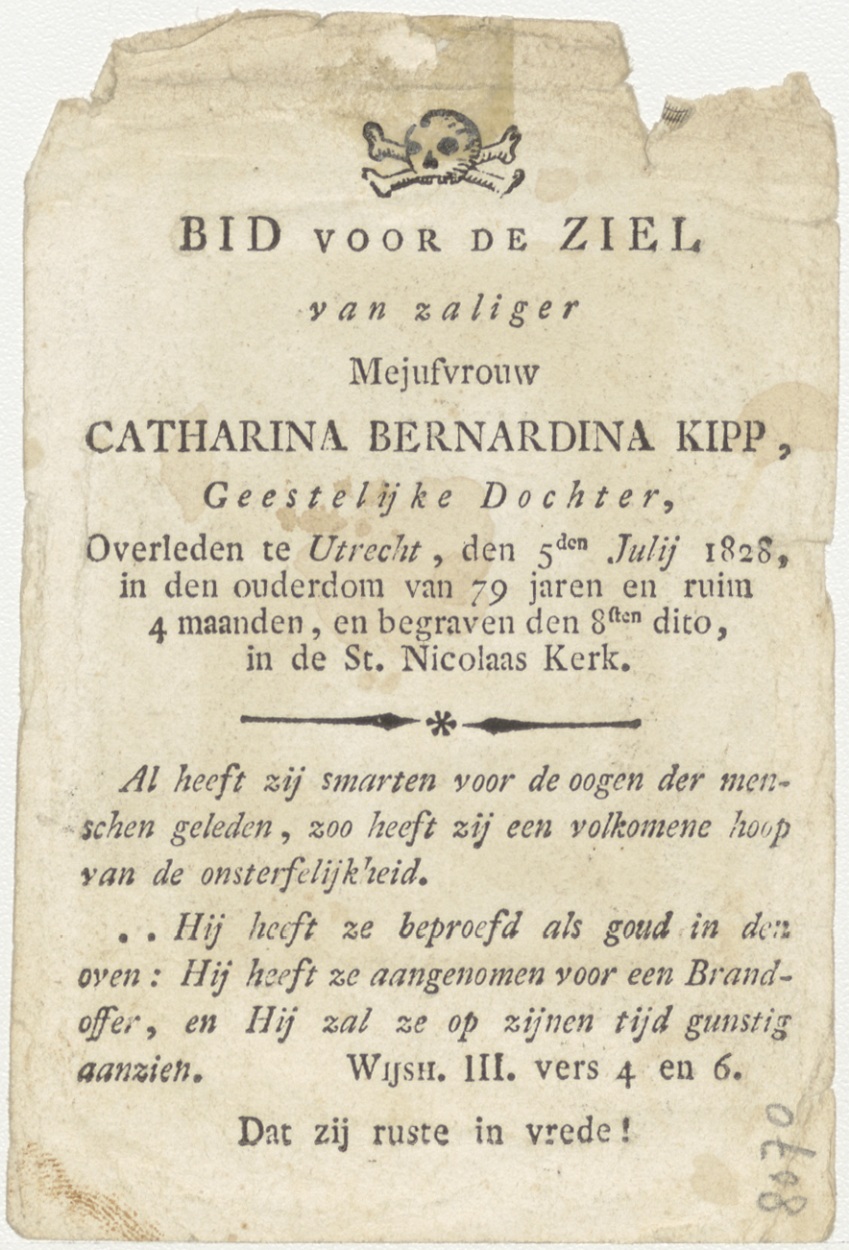 BID VOOR DE ZIEL
van zaliger
Mejufvrouw
CATHARINA BERNARDINA KIPP,
Geestelijke Dochter,
Overleden te Utrecht, den 5den Julij 1828,
in den ouderdom van 79 jaren en ruim
4 maanden, en begraven den 8sten dito,
in de St. Nicolaas Kerk.
Al heeft zij smarten voor de oogen der men-
schen geleden, zoo heeft zij een volkomene hoop
van de onsterfelijkheid.
. . Hij heeft ze beproefd als goud in den
oven: Hij heeft ze aangenomen voor een Brand-
offer, en Hij zal ze op zijnen tijd gunstig
aanzien. WIJSH. III. vers 4 en 6.
Dat zij ruste in vrede!
8070